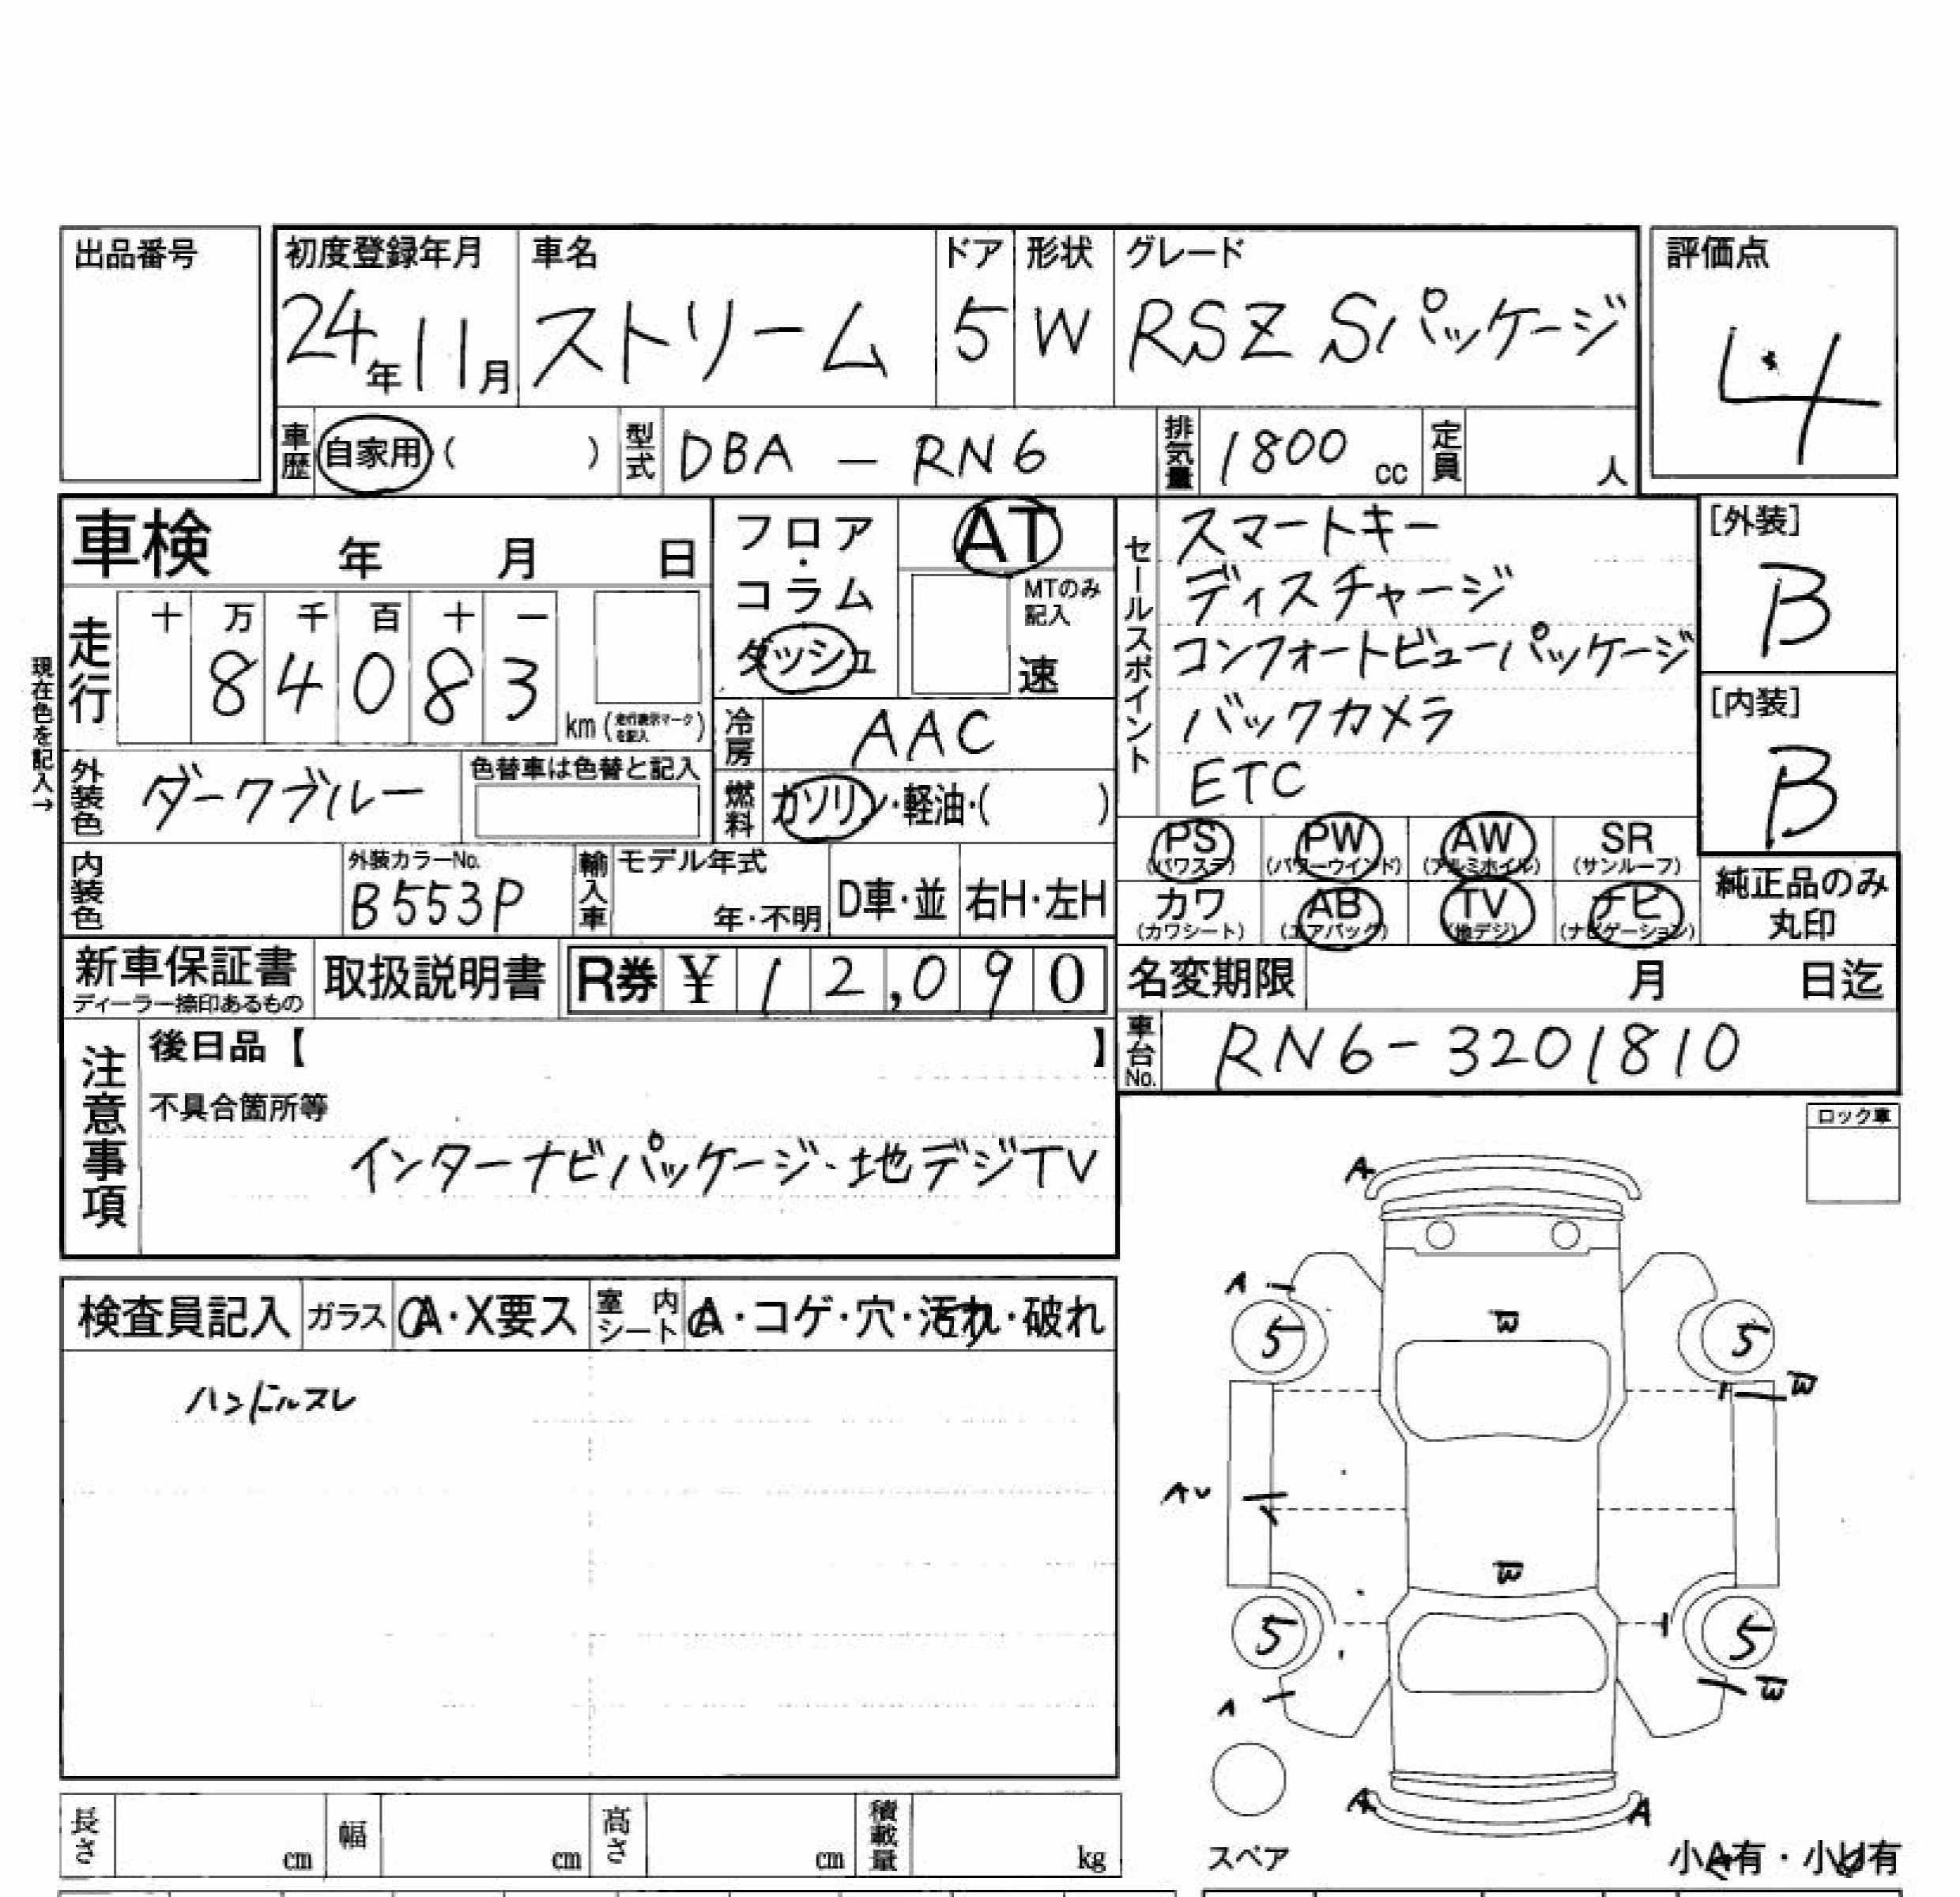 出品番号
初度登録年月 車名 ドア 形状 グレード 評価点
24年11月 ストリーム 5 W RSZ Sパッケージ 4
車歴 自家用 ( ) 型式 DBA - RN6 排気量 1800 cc 定員 人
車検 年 月 日
フロア・コラム ダッシュ
AT
MTのみ記入
速
セールスポイント
スマートキー
ディスチャージ
コンフォートビューパッケージ
バックカメラ
ETC
[外装]
B
[内装]
B
現在色を記入→
走行 十 万 千 百 十 一
84083 km (走行表示マークを記入)
冷房 AAC
外装色 ダークブルー 色替車は色替と記入
燃料 ガソリン・軽油・( )
PS (パワステ) PW (パワーウインド) AW (アルミホイル) SR (サンルーフ)
カワ (カワシート) AB (エアバッグ) TV (地デジ) ナビ (ナビゲーション)
純正品のみ丸印
内装色 外装カラーNo. B553P 輸入車 モデル年式 年・不明 D車・並 右H・左H
新車保証書 ディーラー捺印あるもの 取扱説明書 R券 ¥12,090
名変期限 月 日迄
車台No. RN6-3201810
注意事項
後日品【 】
不具合箇所等
インターナビパッケージ・地デジTV
ロック車
検査員記入 ガラス A・X要ス 室内シート A・コゲ・穴・汚れ・破れ
ハンドルスレ
A
A
W
5 5
W
AU
W
5 5
A W
A A
スペア
小A有・小U有
長さ cm 幅 cm 高さ cm 積載量 kg